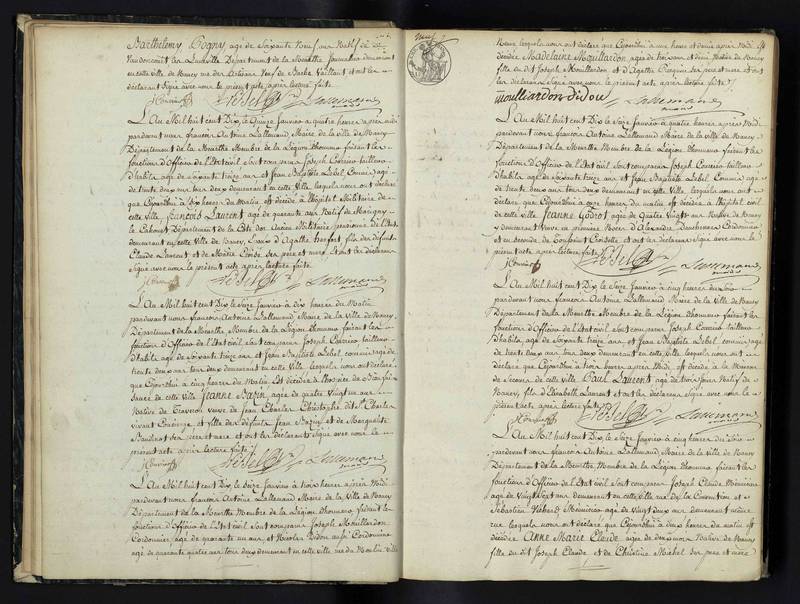 Barthelemy Pogny, agé de Soixante Neuf ans Natif de
Vandoncourt les Luneville Departement de la Meurthe Journalier demeurant
en cette ville de Nancy rue des Artisans
déclarans Signé avec nous le présent acte après lecture faite
JCourrier Lebel Lallemand
L'An Mil huit cent Dix le Quinze Janvier à quatre heures après Midi
pardevant nous françois Antoine Lallemand Maire de la ville de Nancy
Département de la Meurthe Membre de la Légion d'honneur faisant les
fonctions d'Officier de l'état civil sont comparus Joseph Courrier tailleur
d'habits agé de soixante treize ans et Jean Baptiste Lebel Commis agé
de trente deux ans tous deux demeurant en cette Ville, lesquels nous ont déclaré
que Cejourd'hui à dix heures du Matin est décédé à l'hôpital Militaire de
cette ville François Laurent agé de quarante ans Natif de Marigny
le Cahouet Département de la Côte d'or ancien Militaire pensionné de l'état
demeurant en cette Ville de Nancy, Epoux d'Agathe fils des défunts
Claude Laurent et de ses pere et mere et ont les déclarans
Signé avec nous le présent acte après lecture faite
JCourrier Lebel Lallemand
L'An Mil huit cent Dix le Seize Janvier à dix heures du Matin
pardevant nous françois Antoine Lallemand Maire de la Ville de Nancy
Département de la Meurthe Membre de la Légion d'honneur faisant les
fonctions d'Officier de l'état civil sont comparus Joseph Courrier tailleur
d'habits agé de soixante treize ans et Jean Baptiste Lebel commis agé de
trente deux ans tous deux demeurant en cette ville lesquels nous ont déclaré
que Cejourd'hui à cinq heures du Matin est décédée à l'hospice de Bienfai-
sance de cette ville Jeanne Bazin agée de quatre Vingt un ans
Native de veuve de Jean Charles Christophe dit St Charles
vivant Concierge et fille des défunts Jean Bazin et de Marguerite
ses pere et mere et ont les déclarans Signé avec nous le
présent acte après lecture faite
JCourrier Lebel Lallemand
L'An Mil huit cent Dix le Seize Janvier à trois heures après Midi
pardevant nous françois Antoine Lallemand Maire de la Ville de Nancy
Département de la Meurthe Membre de la Légion d'honneur faisant les
fonctions d'Officier de l'état civil sont comparus Joseph Mouillardon
Cordonnier agé de quarante un ans, et Nicolas Didon aussi Cordonnier
agé de quarante quatre ans tous deux demeurant en cette ville rue du Moulin
lesquels nous ont déclaré que Cejourd'hui à une heure et demie après Midi est
décédée Madelaine Mouillardon agée de trois ans et demi Native de Nancy
fille du dit Joseph Mouillardon et d'Agathe ses pere et mere et ont
les déclarans Signé avec nous le présent acte après lecture faite
mouilliardon didou Lallemand
L'An Mil huit cent Dix le Seize Janvier à quatre heures après Midi
pardevant nous françois Antoine Lallemand Maire de la ville de Nancy
Département de la Meurthe Membre de la Légion d'honneur faisant les
fonctions d'Officier de l'état civil sont comparus Joseph Courrier tailleur
d'habits agé de soixante treize ans et Jean Baptiste Lebel Commis agé
de trente deux ans tous deux demeurant en cette ville, lesquels nous ont
déclaré que Cejourd'hui à onze heures du matin est décédée à l'hôpital civil
de cette ville Jeanne Godrot agée de Quatre Vingts ans Native de Nancy
y demeurant Veuve en première Noces d'Alexandre Cordonnier
et en seconde de Toussaint et ont les déclarans Signé avec nous le
présent acte après lecture faite
JCourrier Lebel Lallemand
L'An Mil huit cent Dix le Seize Janvier à cinq heures du Soir
pardevant nous françois Antoine Lallemand Maire de la Ville de Nancy
Département de la Meurthe Membre de la Légion d'honneur faisant les
fonctions d'Officier de l'état civil sont comparus Joseph Courrier tailleur
d'habits agé de soixante treize ans et Jean Baptiste Lebel commis agé
de trente deux ans tous deux demeurant en cette Ville, lesquels nous ont
déclaré que Cejourd'hui à trois heures après Midi est décédé à la Maison
de Secours de cette ville Paul Laurent agé de trois jours Natif de
Nancy, fils d'Elizabeth Laurent et ont les déclarans Signé avec nous le
présent acte après lecture faite
JCourrier Lebel Lallemand
L'An Mil huit cent Dix le Seize Janvier à cinq heures du Soir
pardevant nous françois Antoine Lallemand Maire de la Ville de Nancy
Département de la Meurthe Membre de la Légion d'honneur faisant les
fonctions d'Officier de l'état civil sont comparus Joseph Claude Menuisier
agé de Vingt Sept ans demeurant en cette ville rue de la Convention et
Sébastien Menuisier agé de Vingt deux ans demeurant même
rue lesquels nous ont déclaré que Cejourd'hui à deux heures du matin est
décédée Anne Marie Claude agée de deux mois Native de Nancy
fille du dit Joseph Claude et de Christine Michel ses pere et mere